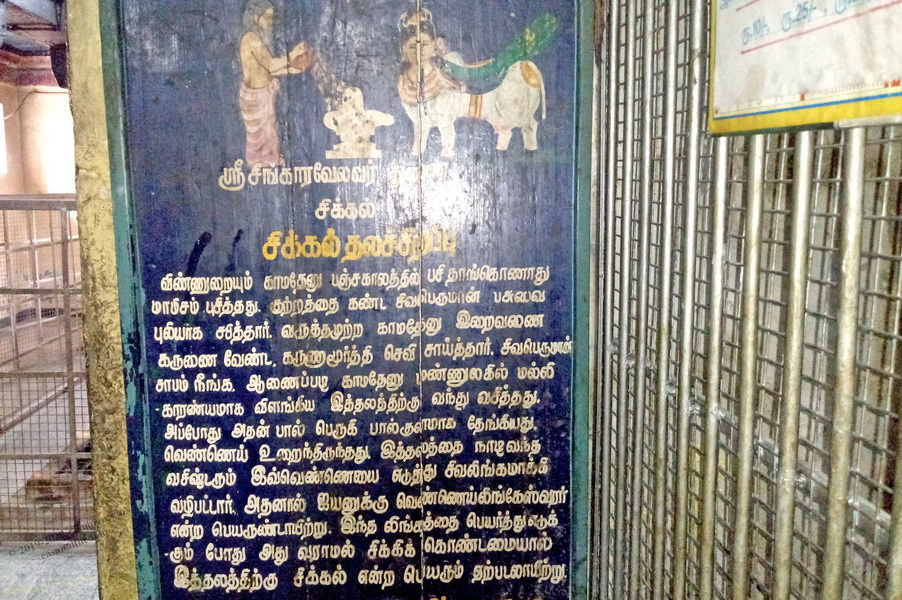 ரூ.10/- ரூ.25/-
ஸ்ரீ சிங்காரவேலவர்
சிக்கல்
சிக்கல் தலச்சிறப்பு
விண்ணுறையும் காமதேனு பஞ்சகாலத்தில் பசி தாங்கொணாது
மாமிசம் புசித்தது. குற்றத்தை கண்ட சிவபெருமான் பசுவை
புலியாக சபித்தார். வருத்தமுற்ற காமதேனு இறைவனை
கருணை வேண்ட, கருணாமூர்த்தி செவி சாய்த்தார். சிவபெருமான்
சாபம் நீங்க, ஆணைப்படி காமதேனு மண்ணுலகில் மல்லி
-காரண்யமாக விளங்கிய இத்தலத்திற்கு வந்து வசித்தது.
அப்போது அதன் பால் பெருகி பால்குளமாக தேங்கியது.
வெண்ணெய் உறைந்திருந்தது. இத்தலத்தை நாடிவந்த
வசிஷ்டரும் இவ்வெண்ணெயை எடுத்து சிவலிங்கமாக்கி
வழிபட்டார். அதனால் ஐயனுக்கு வெண்ணெய்லிங்கேஸ்வரர்
என்ற பெயருண்டாயிற்று. இந்த லிங்கத்தை பெயர்த்துஎடுக்
-கும் போது அது வராமல் சிக்கிக் கொண்டமையால்
இத்தலத்திற்கு சிக்கல் என்ற பெயரும் ஏற்படலாயிற்று.